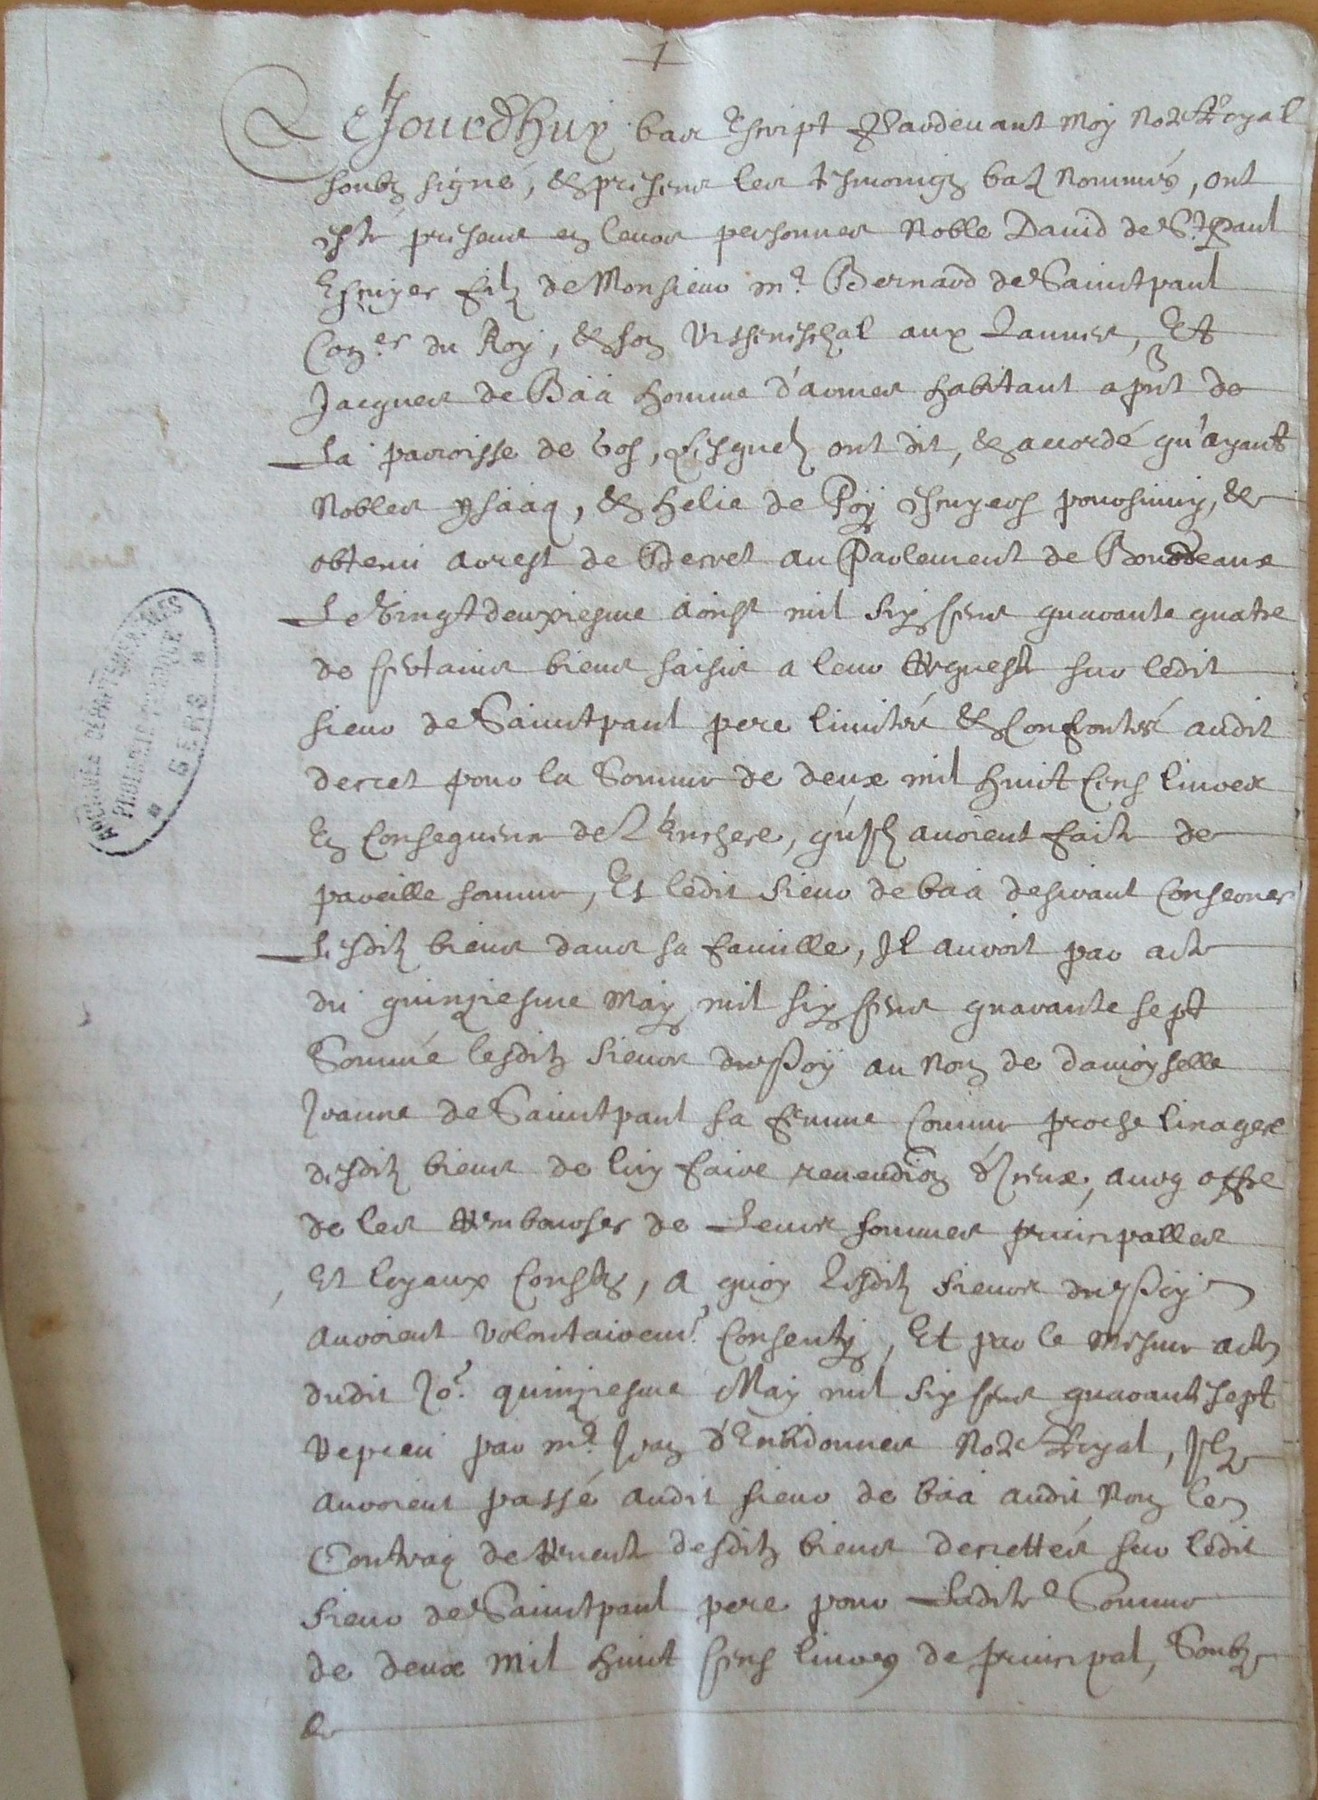 1
Cejourdhuy bas escript Pardevant Moy Not.re Royal
soubz signé, & presens les tesmoingz bas Nommés, ont
esté presens en leurs personnes Noble David de St Paul
Escuyer filz de Monsieur mr. Bernard de Sainctpaul
Con.er du Roy, & son viseneschal aux Lannes, Et
Jacques de Baa homme d'armes habitant a pnt de
La parroisse de Gos, Lesquelz ont dit, & accordé qu'ayant
Nobles ysaaq, & helie de Poy escuyers poursuivy, &
obtenu arrest de Decret au Parlement de Bourdeaux
Le Vingt deuxiesme aoust mil six sens quarante quatre
de sertains biens saisis a leur Requeste sur ledit
sieur de Sainctpaul pere limités & Confrontés audit
decret pour la Somme de deux mil huit Cens livres
En Consequence de L'enchere, qu'ilz avoient faite de
pareille somme, Et ledit sieur de baa desirant Conserver
Lesditz biens dans sa famille, Il auroit par acte
du quinziesme May mil six sens quarante sept
Sommé lesditz sieurs du Poy au Nom de damoyselle
Jeanne de Sainctpaul sa femme Comme proche linagere
desditz biens de luy faire revendion d'Iceux, avec offre
de les Rembourser de Leurs sommes principalles
Et loyaux Constz, a quoy Lesditz sieurs du Poy
auroient volontairemt. Consenty, Et par le mesme acte
dudit Jor. quinziesme May mil six sens quarante sept
Reteneu par mr. Jean Not.re Royal, Ilz
auroient passé audit sieur de baa audit Nom le
Contraq de Revente desditz biens decrettés sur ledit
sieur de Sainctpaul pere pour Ladite Somme
de deux mil huit sens livres de principal, Soubz
&
ARCHIVES DEPARTEMENTALES
PROPRIETE PUBLIQUE
* GERS *